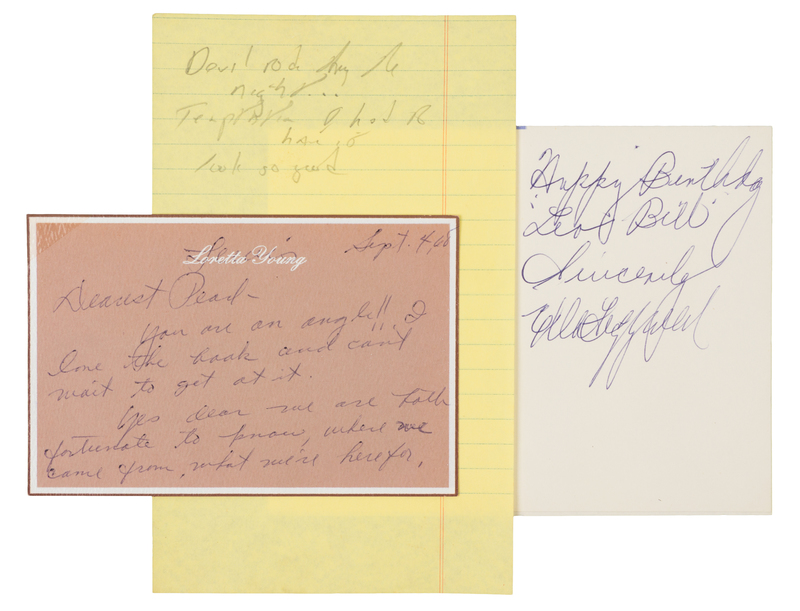 Devil rode by the
night...
Temptation I had to
have it
look so good
Loretta Young
Sept. 4, 68
Dearest Pearl—
You are an angle!! I
love the book and can't
wait to get at it.
Yes dear we are both
fortunate to know, where we
came from, what we're here for,
Happy Birthday
"Levi Bill"
Sincerely
Ella Fitzgerald